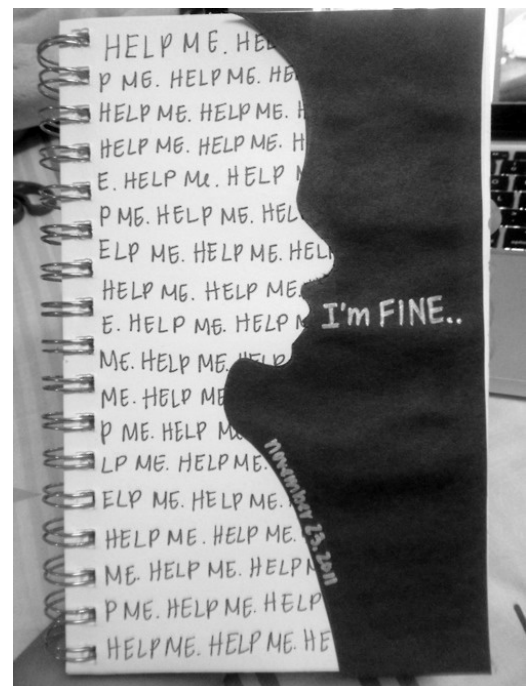 HELP ME. HE
P ME. HELP ME. HE
HELP ME. HELP ME. H
HELP ME. HELP ME. H
E. HELP Me. HELP M
P ME. HELP ME. HEL
ELP ME. HELP ME. HELP
HELP ME. HELP ME.
E. HELP ME. HELP M
I'm FINE..
ME. HELP ME. HELP
ME. HELP ME
P ME. HELP ME.
LP ME. HELP ME.
ELP ME. HELP ME.
HELP ME. HELP ME.
ME. HELP ME. HELP M
P ME. HELP ME. HELP
HELP ME. HELP ME. HE
november 23, 2011